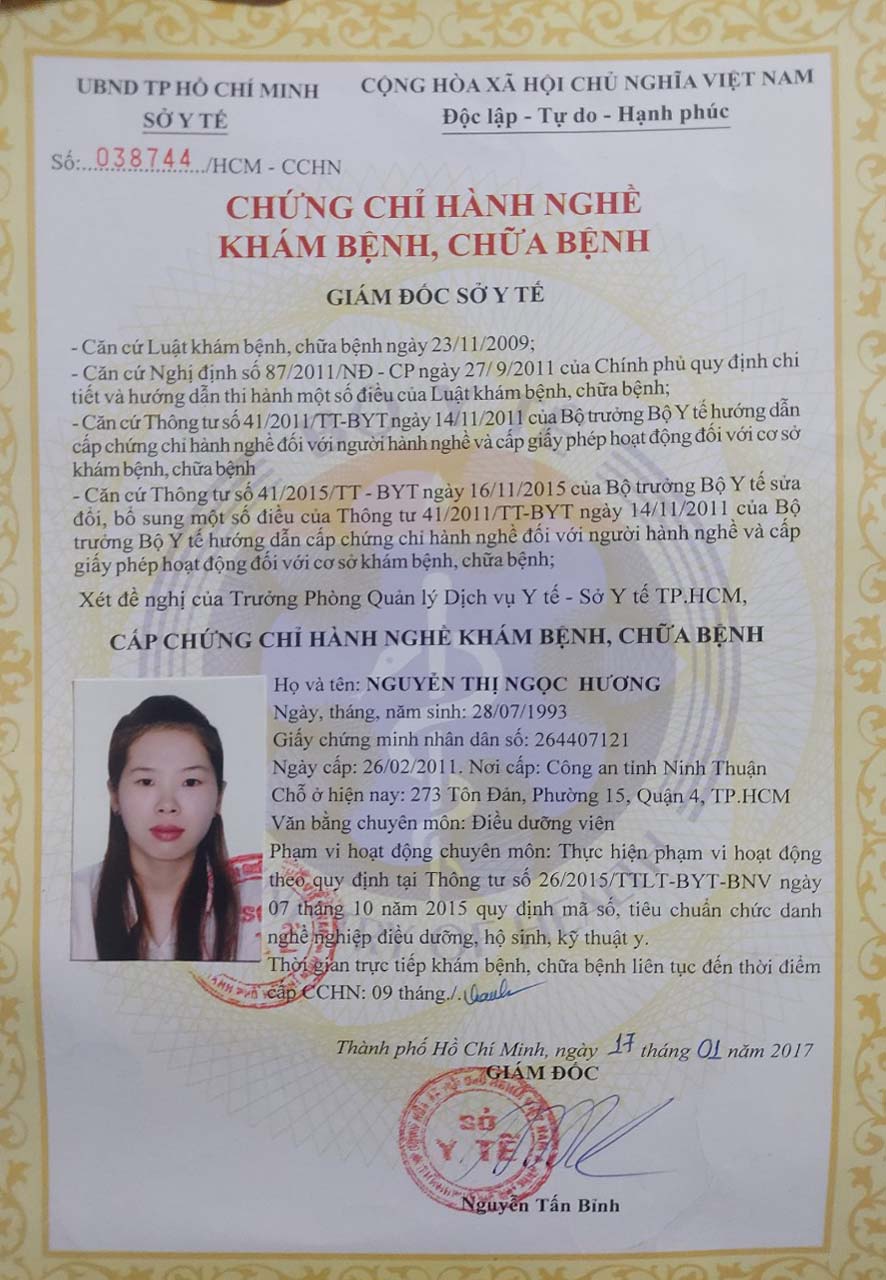 UBND TP HỒ CHÍ MINH
SỞ Y TẾ
CỘNG HÒA XÃ HỘI CHỦ NGHĨA VIỆT NAM
Độc lập - Tự do - Hạnh phúc
Số: 038744 /HCM - CCHN
CHỨNG CHỈ HÀNH NGHỀ
KHÁM BỆNH, CHỮA BỆNH
GIÁM ĐỐC SỞ Y TẾ
- Căn cứ Luật khám bệnh, chữa bệnh ngày 23/11/2009;
- Căn cứ Nghị định số 87/2011/NĐ - CP ngày 27/ 9/2011 của Chính phủ quy định chi
tiết và hướng dẫn thi hành một số điều của Luật khám bệnh, chữa bệnh;
- Căn cứ Thông tư số 41/2011/TT-BYT ngày 14/11/2011 của Bộ trưởng Bộ Y tế hướng dẫn
cấp chứng chỉ hành nghề đối với người hành nghề và cấp giấy phép hoạt động đối với cơ sở
khám bệnh, chữa bệnh
- Căn cứ Thông tư số 41/2015/TT - BYT ngày 16/11/2015 của Bộ trưởng Bộ Y tế sửa
đổi, bổ sung một số điều của Thông tư 41/2011/TT-BYT ngày 14/11/2011 của Bộ
trưởng Bộ Y tế hướng dẫn cấp chứng chỉ hành nghề đối với người hành nghề và cấp
giấy phép hoạt động đối với cơ sở khám bệnh, chữa bệnh;
Xét đề nghị của Trưởng Phòng Quản lý Dịch vụ Y tế - Sở Y tế TP.HCM,
CẤP CHỨNG CHỈ HÀNH NGHỀ KHÁM BỆNH, CHỮA BỆNH
Họ và tên: NGUYỄN THỊ NGỌC HƯƠNG
Ngày, tháng, năm sinh: 28/07/1993
Giấy chứng minh nhân dân số: 264407121
Ngày cấp: 26/02/2011. Nơi cấp: Công an tỉnh Ninh Thuận
Chỗ ở hiện nay: 273 Tôn Đản, Phường 15, Quận 4, TP.HCM
Văn bằng chuyên môn: Điều dưỡng viên
Phạm vi hoạt động chuyên môn: Thực hiện phạm vi hoạt động
theo quy định tại Thông tư số 26/2015/TTLT-BYT-BNV ngày
07 tháng 10 năm 2015 quy định mã số, tiêu chuẩn chức danh
nghề nghiệp điều dưỡng, hộ sinh, kỹ thuật y.
Thời gian trực tiếp khám bệnh, chữa bệnh liên tục đến thời điểm
cấp CCHN: 09 tháng./.
Thành phố Hồ Chí Minh, ngày 17 tháng 01 năm 2017
GIÁM ĐỐC
SỞ
Y TẾ
Nguyễn Tấn Bỉnh